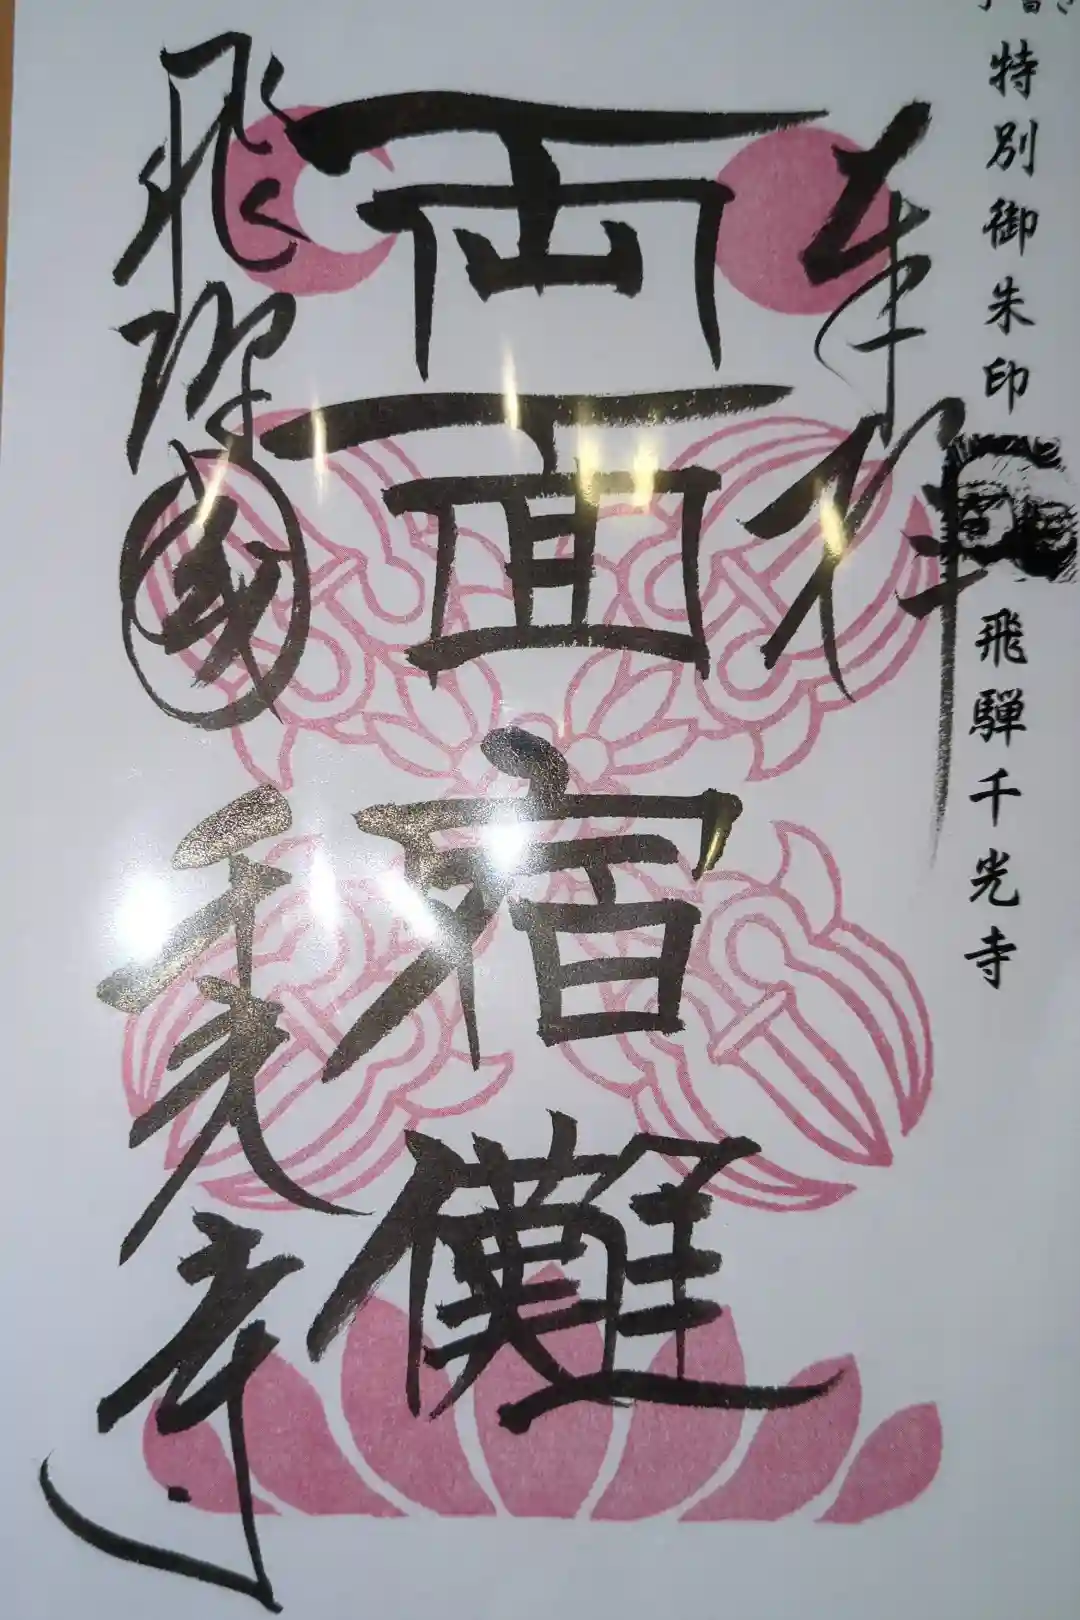 特別御朱印 飛騨千光寺
奉拝
両面宿儺
飛騨國
千光寺